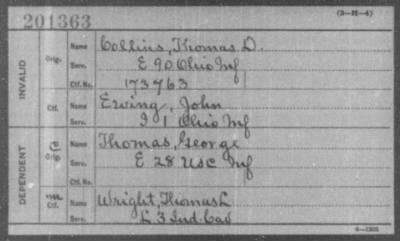 (3-21-4)
201363
INVALID
Orig.
Name Collins, Thomas D.
Serv. E 90 Ohio Inf
Ctf. No. 173763
Ctf.
Name Erving, John
Serv. I 1 Ohio Inf
DEPENDENT
Orig.
Name Thomas, George
Serv. E 28 USC Inf
Ctf. No.
Ctf.
Name Wright, Thomas L
Serv. L 3 Ind. Cav